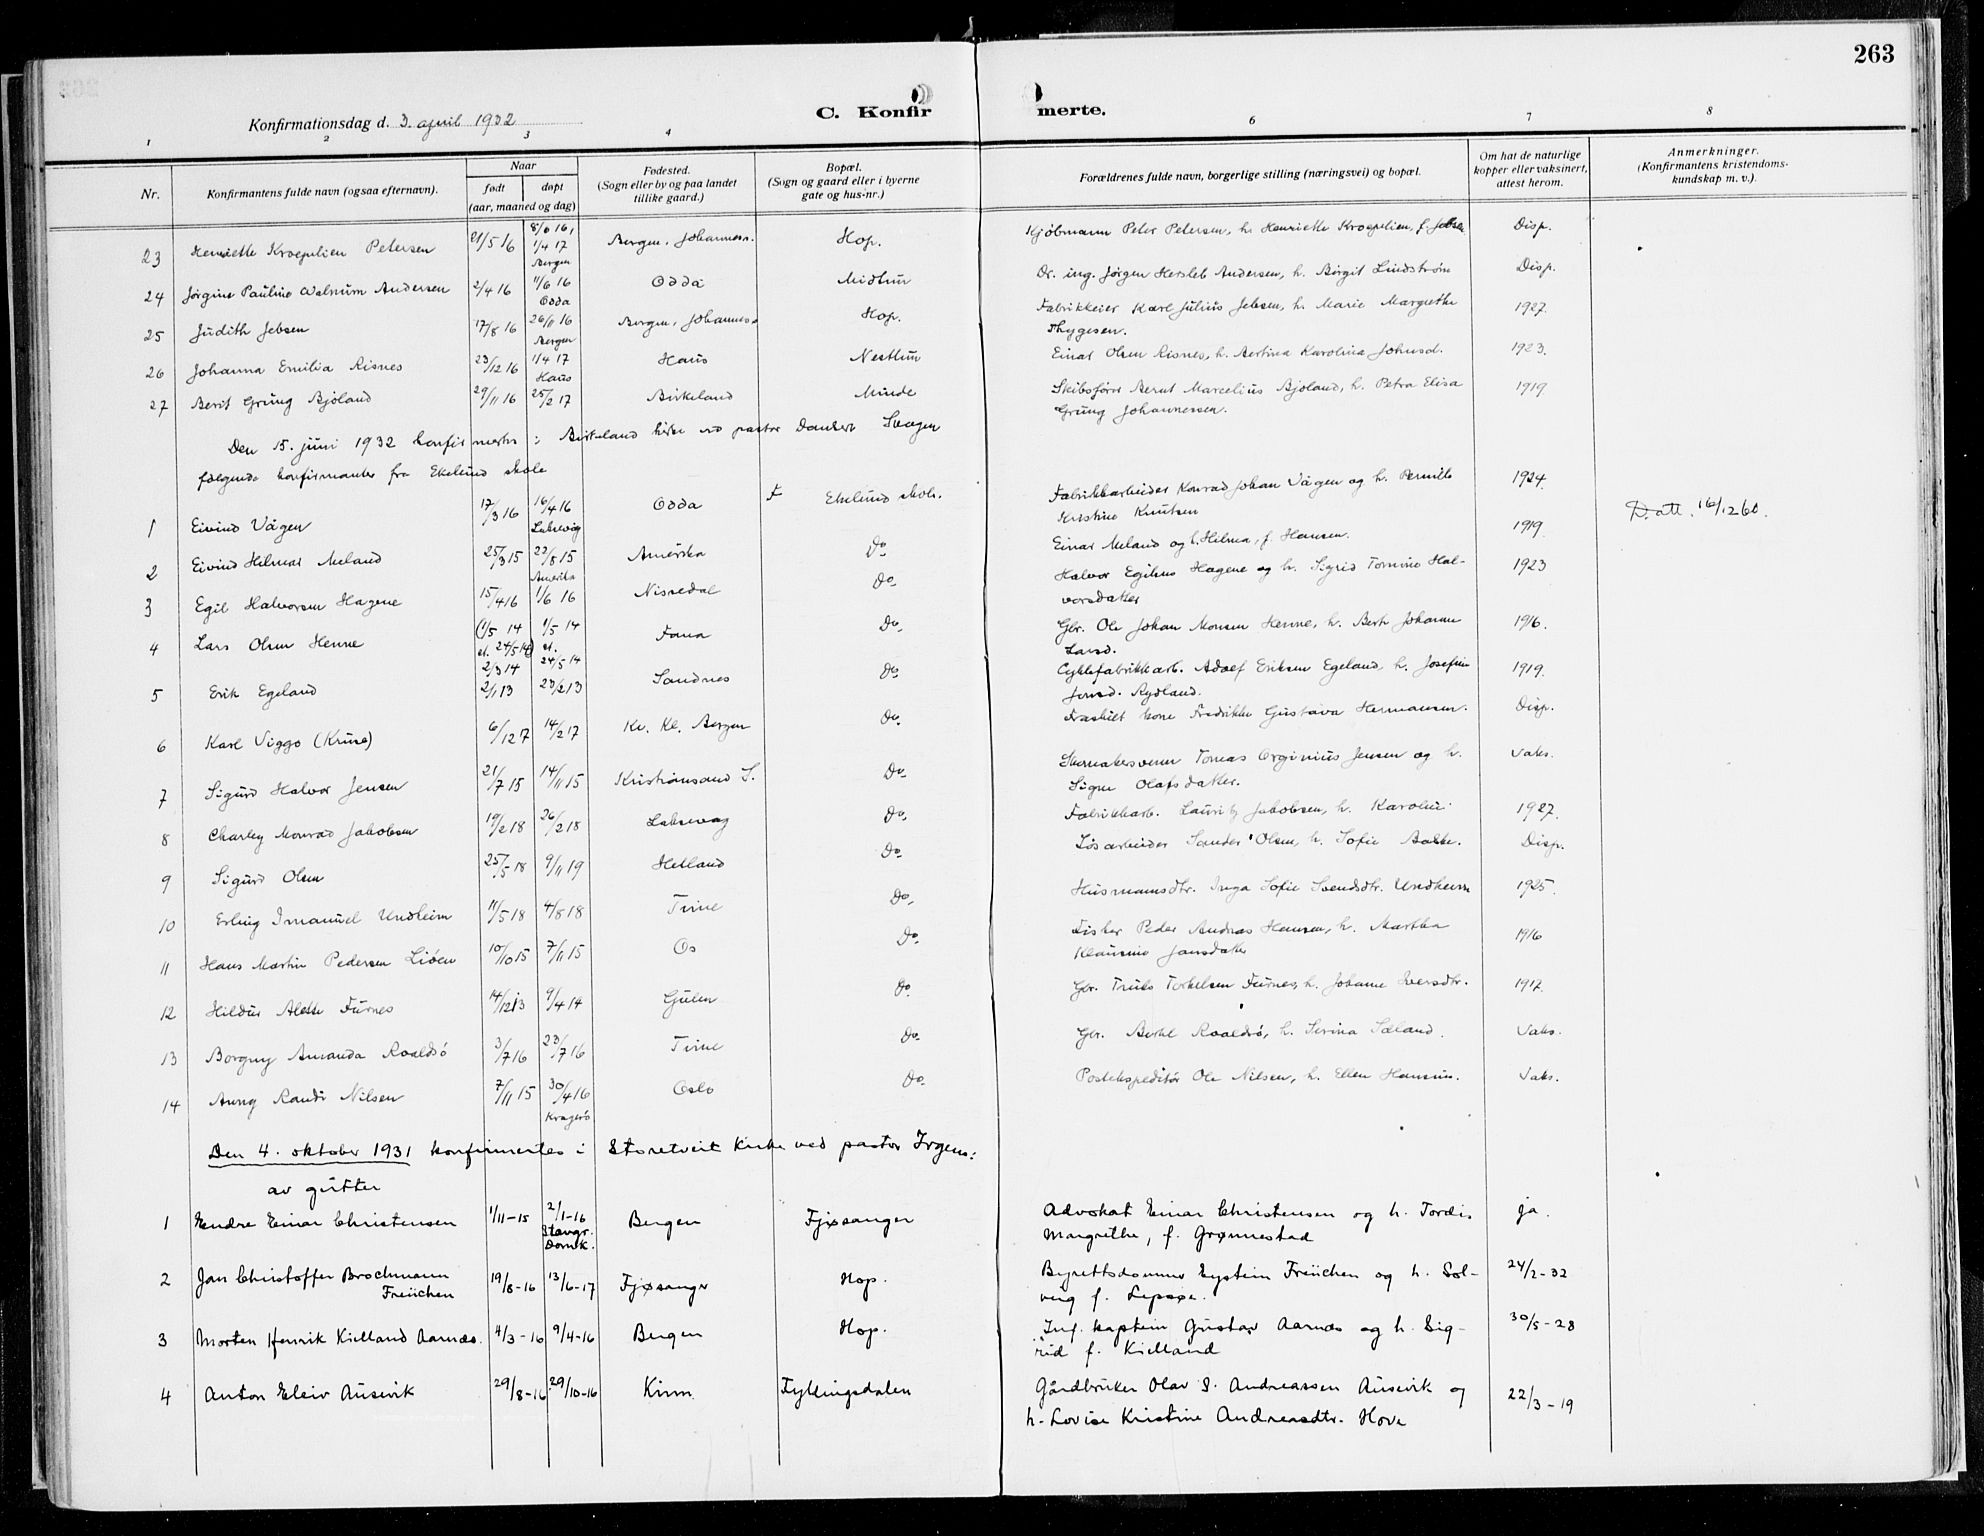 263
C. Konfirmerte.
Konfirmationsdag d. 3. april 1932
1 2 3 4 6 7 8
Nr.
Konfirmantens fulde navn (ogsaa efternavn).
Naar
født døpt
(aar, maaned og dag)
Fødested.
(Sogn eller by og paa landet
tillike gaard.)
Bopæl.
(Sogn og gaard eller i byerne
gate og hus-nr.)
Forældrenes fulde navn, borgerlige stilling (næringsvei) og bopæl.
Om hat de naturlige
kopper eller vaksinert,
attest herom.
Anmerkninger.
(Konfirmantens kristendoms-
kundskap m. v.).
23 Henriette Kroepelien Petersen 21/5 16 8/6 16, 1/4 17 Bergen Bergen, Johannesk. Hop. Kjøbmann Peter Petersen, h. Henriette Kroepelien, f. Jebsen Disp.
24 Jørgine Pauline Walnum Andersen 2/4 16 11/6 16 Odda Odda Midtun Dr. ing. Jørgen Hersleb Andersen, h. Birgit Lindstrøm Disp.
25 Judith Jebsen 17/8 16 26/11 16 Bergen Bergen, Johannesk. Hop. Fabrikkeier Karl Julius Jebsen, h. Marie Margrethe 1927.
Thygesen.
26 Johanna Emilia Risnes 23/12 16 1/4 17 Haus Haus Nesttun Einar Olsen Risnes, h. Bertina Karolina Johnsd. 1923.
27 Berit Grung Bjoland 29/11 16 25/2 17 Birkeland Minde Skibsfører Bernt Marcelius Bjoland, h. Petra Elisa 1919
Grung Johannessen.
Den 15. juni 1932 konfirmerte i Birkeland kirke ved pastor Svagen
følgende konfirmanter fra Ekelund skole
1 Eivind Vågen 17/3 16 16/4 16 Laksevåg Odda F Ekelund skole. Fabrikkarbeider Konrad Johan Vågen og h. Pernille 1924.
Kristine Knutsen
D. att. 16/12 60.
2 Eivind Hilmar Meland 25/3 15 22/8 15 Amerika Amerika Do. Einar Meland og h. Hilma, f. Hansen. 1919.
3 Egil Halvorsen Hagene 15/4 16 1/6 16 Nissedal Do. Halvor Hagene og h. Sigrid Tomine Hal- 1923
vorsdatter
4 Lars Olsen Henne (1/5 14 el. 24/5 14) 1/5 14 el. 24/5 14 Fana Do. Gbr. Ole Johan Monsen Henne, h. Berte Johanne 1916.
Larsd.
5 Erik Egeland 2/3 14 2/1 13 23/2 13 Sandnes Do. Cyklefabrikkarb. Adolf Eriksen Egeland, h. Josefine 1919.
Jensd. Rydland.
6 Karl Viggo (Kruse) 6/12 7 14/2 17 Kv. Kl. Bergen Do. Fraskilt kone Fredrikke Gustava Hermansen. Disp.
7 Sigurd Halvor Jensen 21/7 15 14/11 15 Kristiansand S. Do. Skomakersvenn Tomas Jensen og h. Vaks.
Signe Olafsdatter.
8 Charley Monrad Jakobsen 19/2 18 26/2 18 Laksevåg Do. Fabrikkarb. Lauritz Jakobsen, h. Karoline. 1927.
9 Sigurd Olsen 25/5 18 9/11 19 Hetland Do. Løsarbeider Sander Olsen, h. Sofie Bakke. Disp.
10 Erling Imanuel Undheim 11/5 18 4/8 18 Time Do. Husmannsdtr. Inga Sofie Svendsdtr. Undheim 1925.
11 Hans Martin Pedersen Lidøen 10/10 15 7/11 15 Os Do. Fisker Peder Andreas Hansen, h. Martha 1916
Klausine Jansdatter
12 Hildur Alette Furnes 14/12 13 9/4 14 Gulen Do. Gbr. Truls Torkelsen Furnes, h. Johanne Iversdtr. 1917.
13 Borgny Amanda Roaldsø 3/7 16 23/7 16 Time Do. Gbr. Bertel Roaldsø, h. Serina Sæland. Vaks.
14 Anny Randi Nilsen 7/11 15 30/4 16 Kragerø Oslo Do. Postekspeditør Ole Nilsen, h. Ellen Hansen. Vaks.
Den 4. oktober 1931 konfirmertes i Storetveit Kirke ved pastor Irgens:
av gutter
1 Endre Einar Christensen 1/11-15 2/1-16 Stavgr. Domk. Bergen Fjøsanger Advokat Einar Christensen og h. Tordis ja.
Margrethe, f. Grønnestad
2 Jan Christoffer Brochmann 19/8-16 13/6-17 Fjøsanger Hop. Byrettsdommer Eystein Freüchen og h. Sol- 24/2-32
Freüchen
veig f. Lepsøe.
3 Morten Henrik Kielland Aarnæs. 4/3-16 9/4-16 Bergen Hop. Inf. kaptein Gustav Aarnæs og h. Sig- 30/5-28
rid f. Kielland
4 Anton Eleiv Ausevik 29/8-16 29/10-16 Kinn. Fyllingsdalen Gårdbruker Olav S. Andreassen Ausevik og 22/3-19
h. Lovise Kristine Andreasdtr. Hove